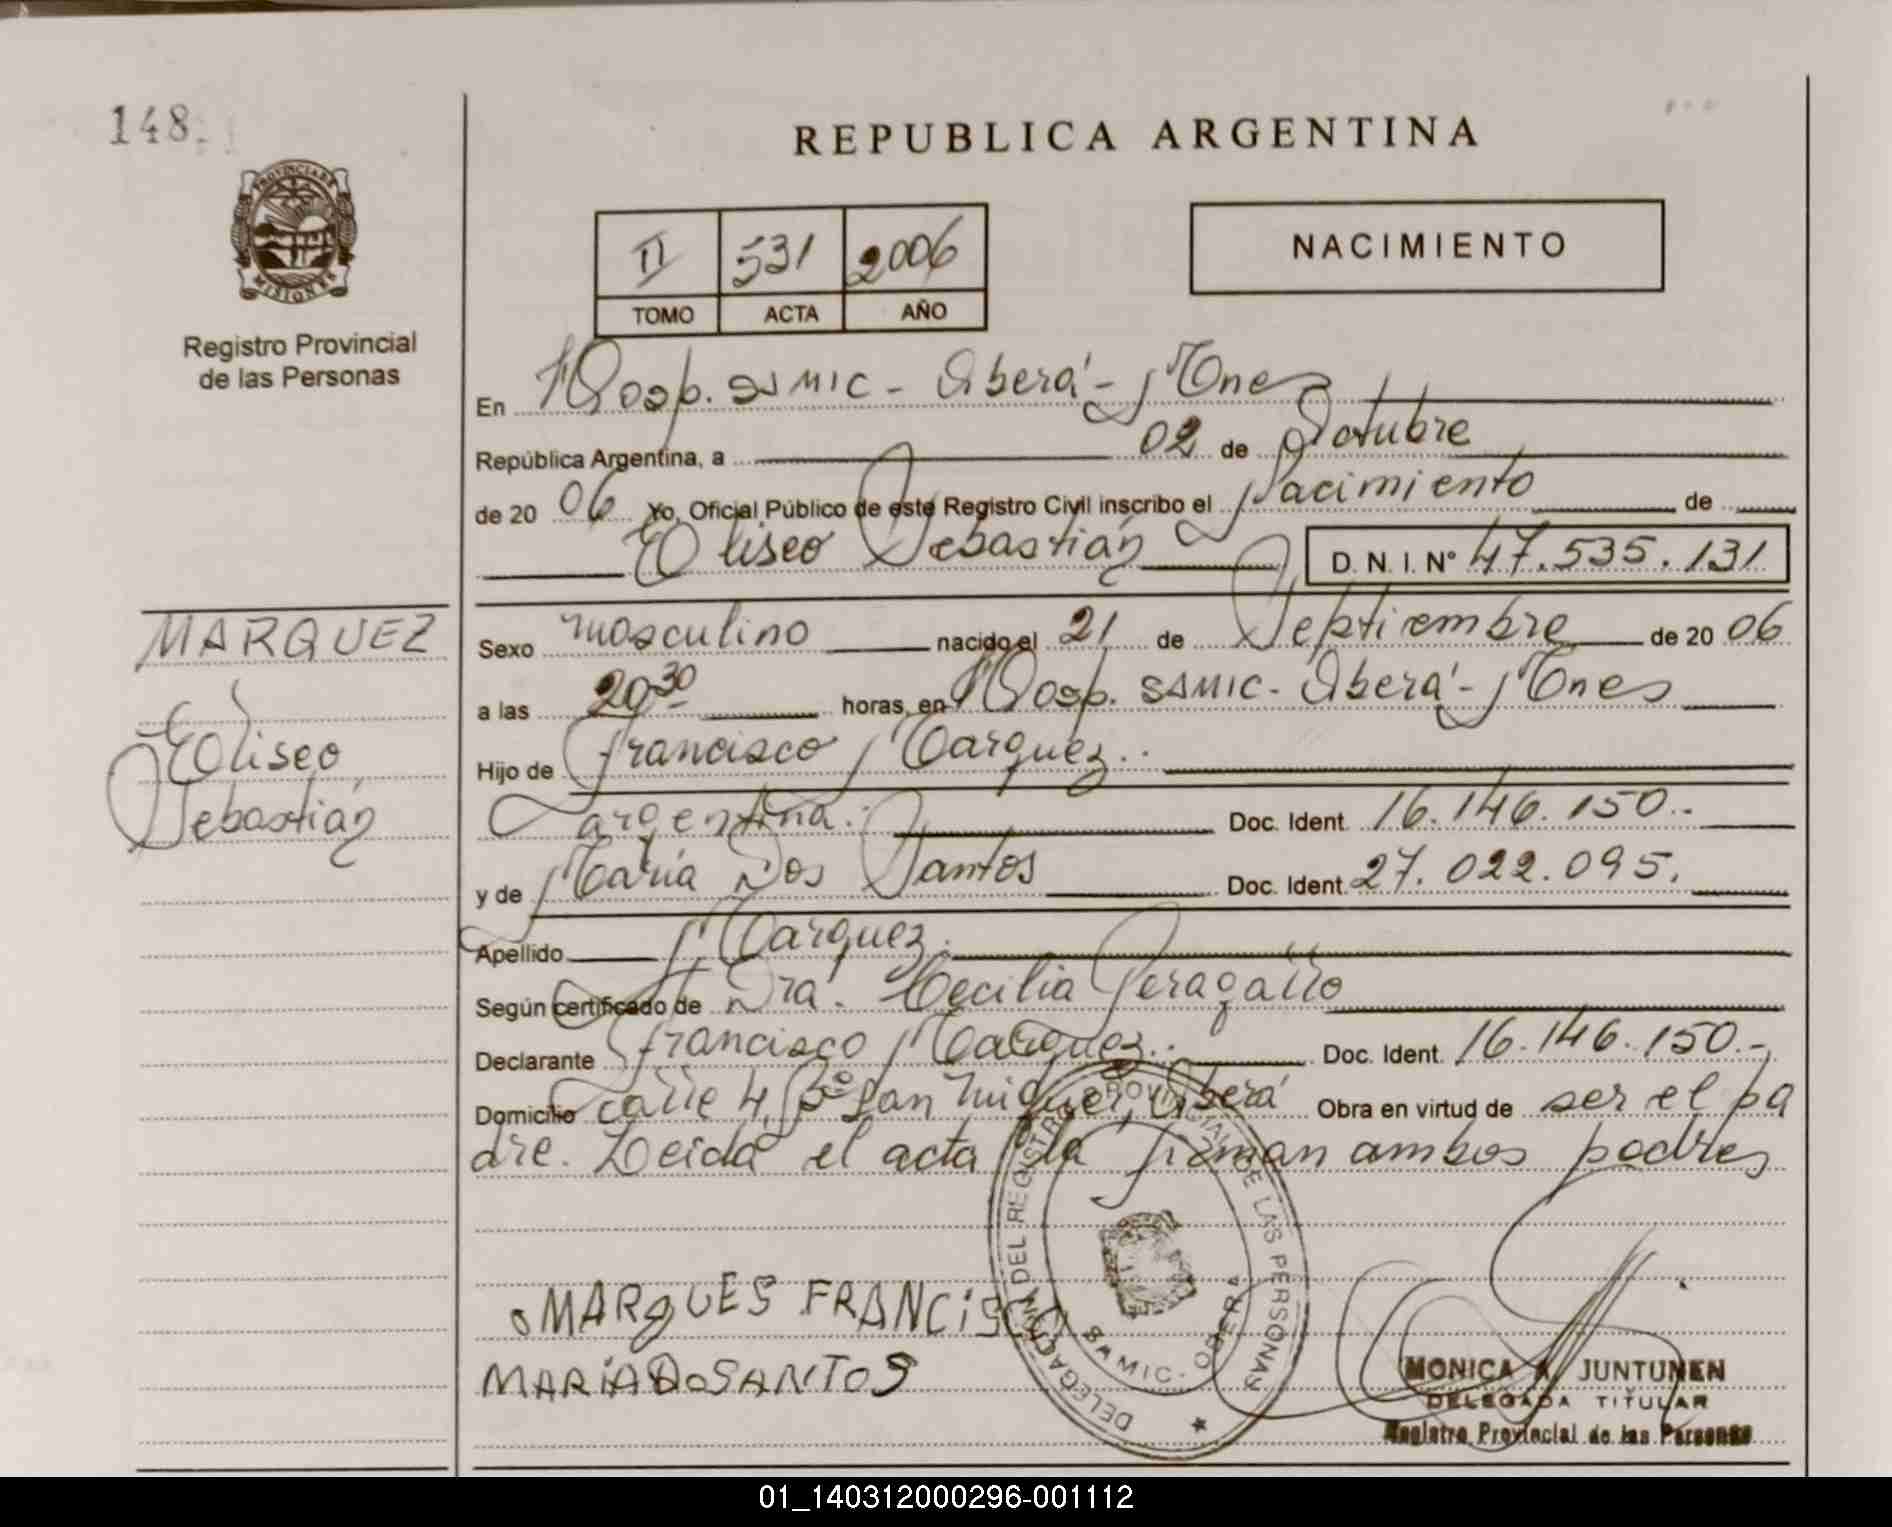 148
REPUBLICA ARGENTINA
PROVINCIA DE
MISIONES
Registro Provincial
de las Personas
II 531 2006
TOMO ACTA AÑO
NACIMIENTO
En Hosp. SAMIC - Oberá - Mnes
República Argentina, a 02 de Octubre
de 20 06 Yo, Oficial Público de este Registro Civil inscribo el Nacimiento de
Eliseo Sebastián D. N. I. Nº 47.535.131
MARQUEZ
Eliseo
Sebastián
Sexo masculino nacido el 21 de Septiembre de 20 06
a las 20 30 horas, en Hosp. SAMIC - Oberá - Mnes
Hijo de Francisco Marquez.
argentina. Doc. Ident. 16.146.150.-
y de María Dos Santos Doc. Ident. 27.022.095.
Apellido Marquez.
Según certificado de Dra. Cecilia
Declarante Francisco Marquez. Doc. Ident. 16.146.150.-
Domicilio calle 4, Bº San Miguel, Oberá Obra en virtud de ser el pa
dre. Leida el acta la firman ambos padres
MARQUES FRANCISCO
MARIA DOSANTOS
DELEGACION DEL REGISTRO PROVINCIAL DE LAS PERSONAS
SAMIC - OBERA
MONICA A. JUNTUNEN
DELEGADA TITULAR
Registro Provincial de las Personas
01_140312000296-001112